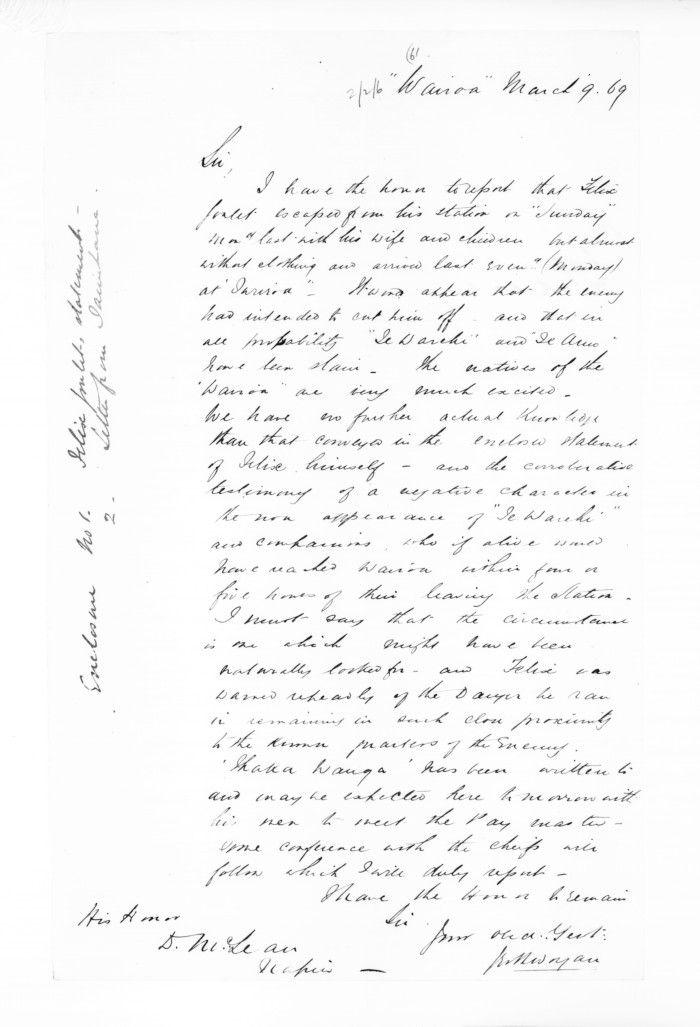 (6)
2/2/6 "Wairoa" March 9. 69
Sir,
I have the honor to report that Felix
Goulet escaped from his station on "Sunday"
last with his wife and children but almost
without clothing and arrived last Even.g (Monday)
at . It would appear that the enemy
had intended to cut him off and that in
all probability "Te Warehi" and "Te Amo"
have been slain - The natives of the
"Wairoa" are very much excited -
We have no further actual Knowledge
than that conveyed in the enclosed statement
of Felix himself - and the coroberative
testimony of a negative character in
the non appearance of "Te Warehi"
and companions, who if alive would
have reached Wairoa within four or
five hours of their leaving the Station -
I must say that the circumstance
is one which might have been
naturally looked for - and Felix was
warned repeatedly of the Danger he ran
in remaining in such close proximity
to the Known quarters of the Enemy.
'Ihaka Wanga' has been written to
and may be expected here tomorrow with
his men to meet the Pay master -
Some conference with the chiefs will
follow which I will duly report -
I have the Honor to remain
Sir
Your obd. Servt.
His Honor
D. McLean
Napier -
Enclosure No 1. Felix Goulets statement -
2 - Letter from